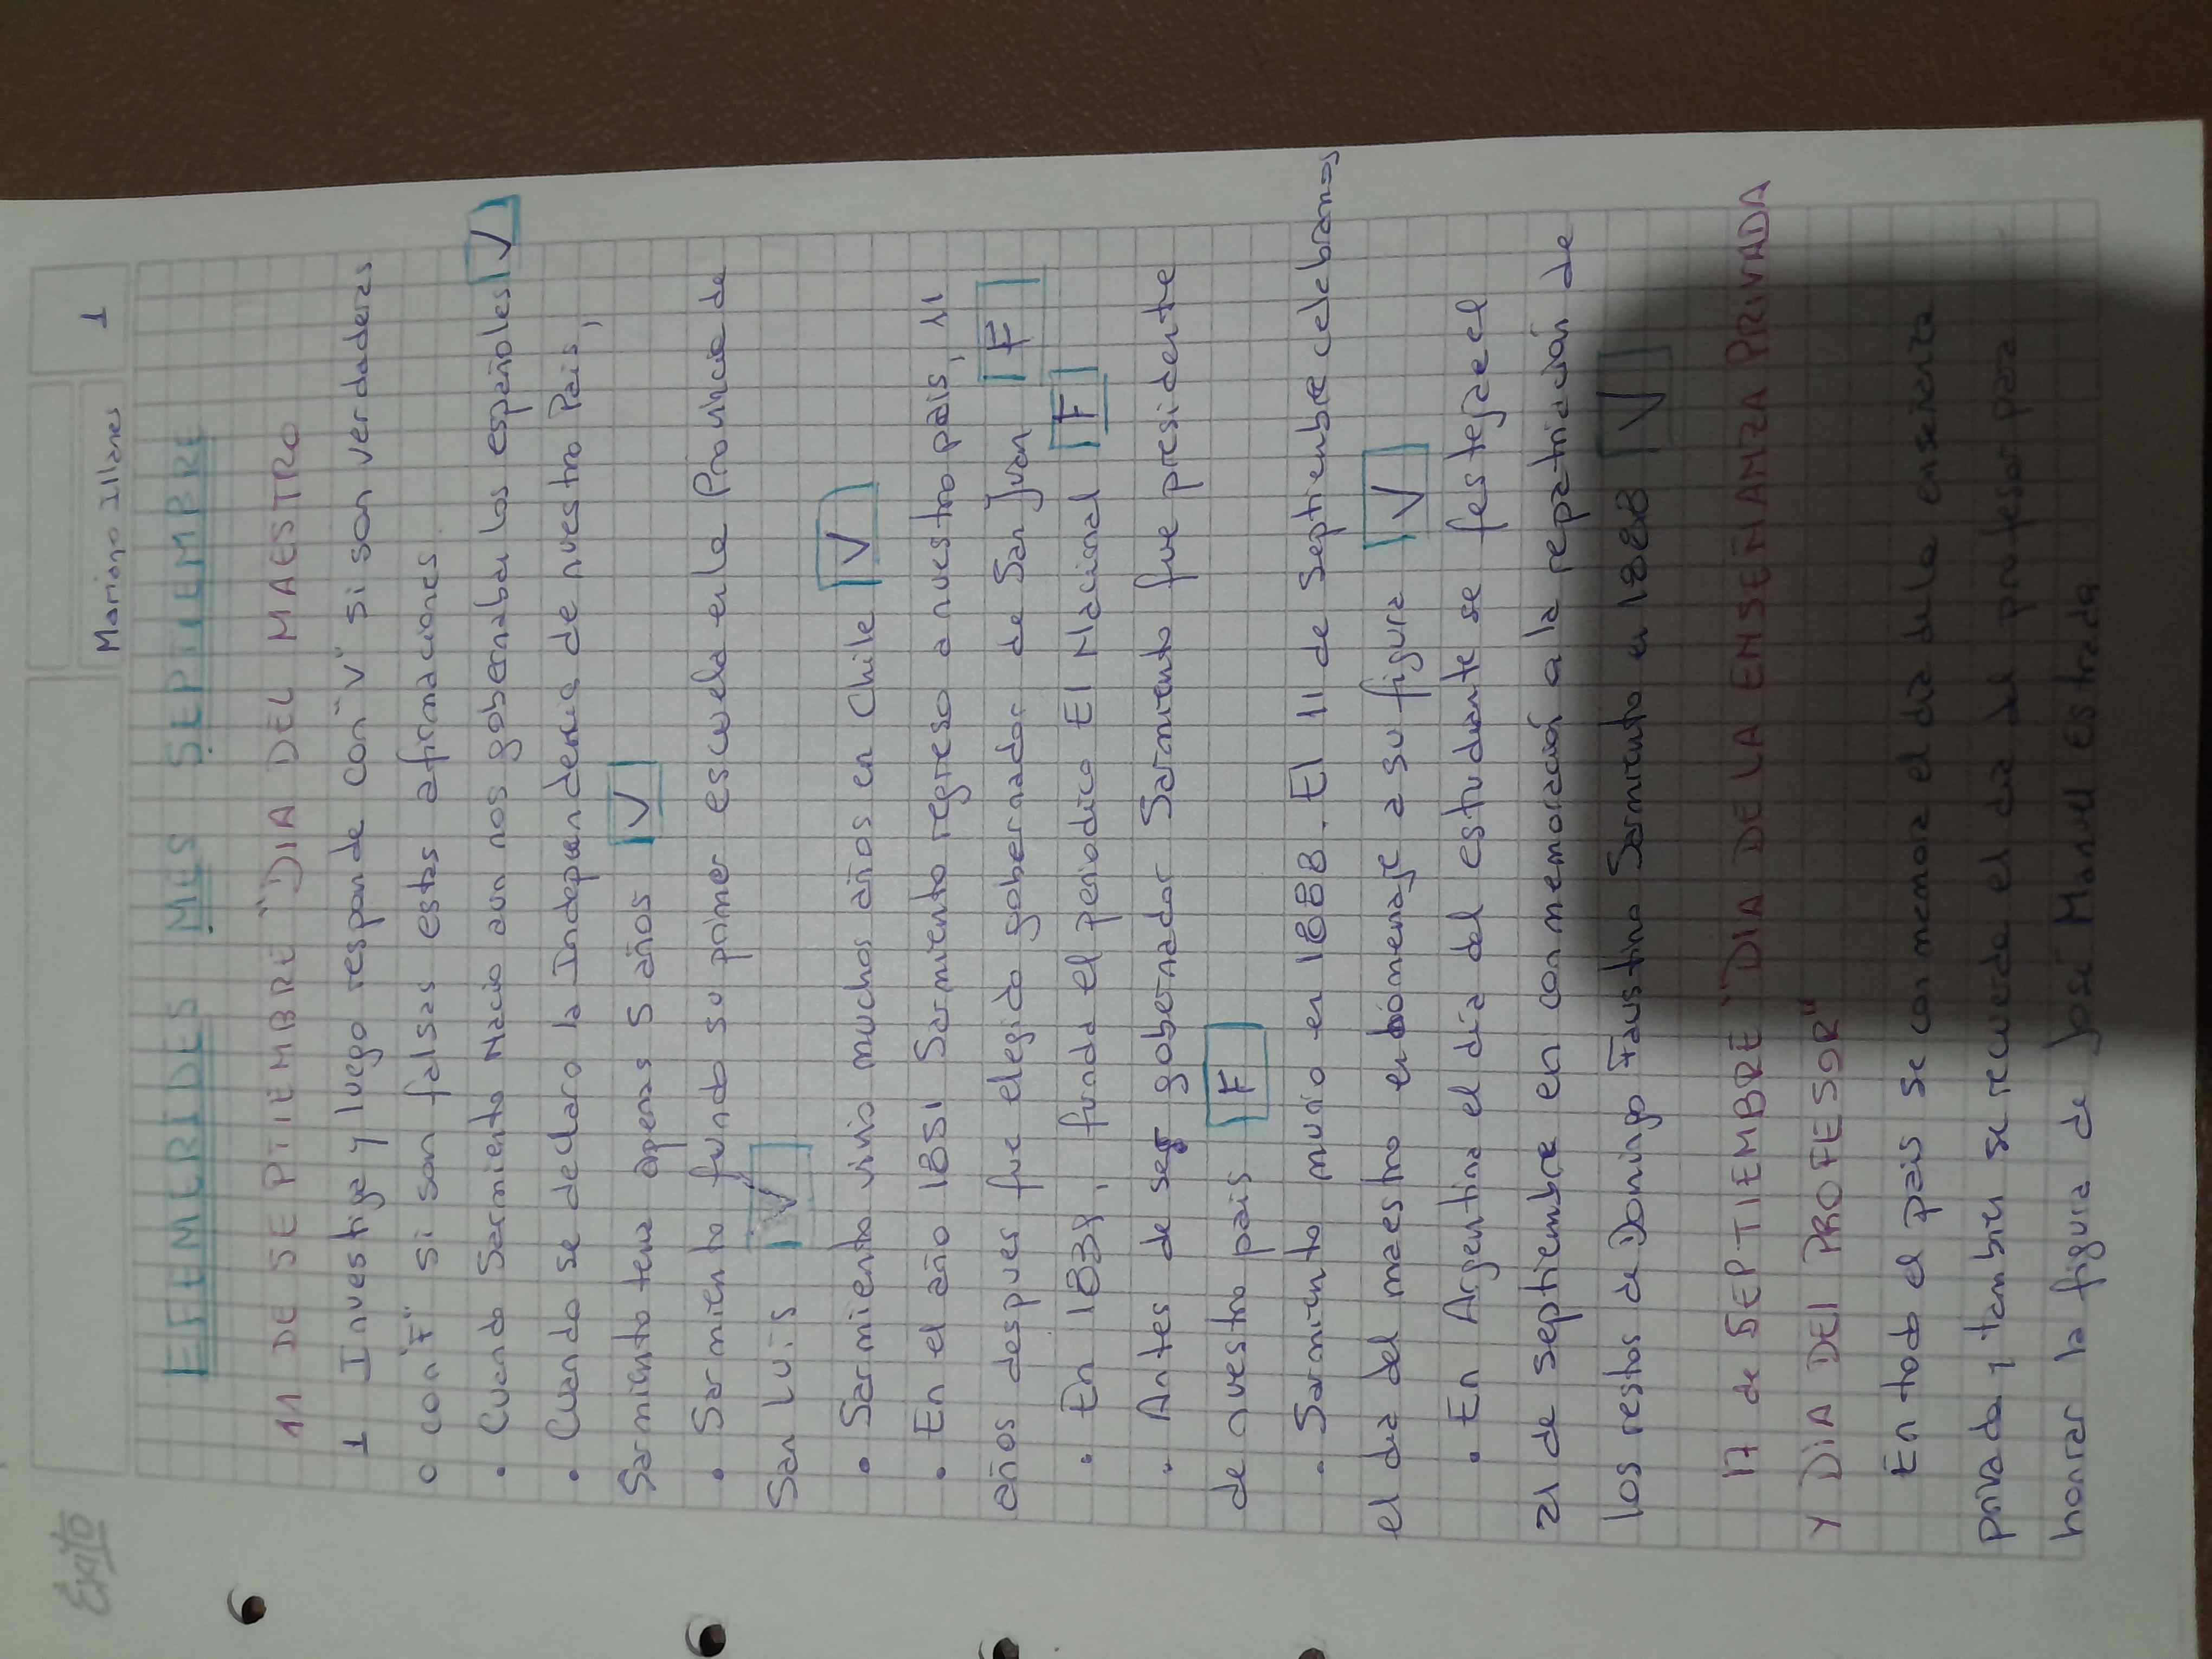 Éxito
Mariano Illanes
1
EFEMERIDES MES SEPTIEMBRE
11 DE SEPTIEMBRE "DIA DEL MAESTRO
1 Investiga y luego responde con "V" si son verdaderas
o con "F" si son falsas estas afirmaciones
• Cuando Sarmiento Nacio aun nos gobernaban los españoles V
• Cuando se declaro la Independencia de nuestro País,
Sarmiento tenia apenas 5 años V
• Sarmiento fundo su primer escuela en la Provincia de
San Luis V
• Sarmiento vivio muchos años en Chile V
• En el año 1851 Sarmiento regreso a nuestro pais, 11
años despues fue elegido gobernador de San Juan F
• En 1839, funda el periodico El Nacional F
• Antes de ser gobernador Sarmiento fue presidente
de nuestro pais F
• Sarmiento murio en 1888. El 11 de Septiembre celebramos
el dia del maestro en homenaje a su figura V
• En Argentina el día del estudiante se festeja el
21 de septiembre en conmemoración a la repatriación de
los restos de Domingo Faustino Sarmiento en 1888 V
17 de SEPTIEMBRE "DIA DE LA ENSEÑANZA PRIVADA
Y DIA DEL PROFESOR"
En todo el pais se conmemora el dia de la enseñanza
privada y tambien se recuerda el dia del profesor para
honrar la figura de José Manuel estrada